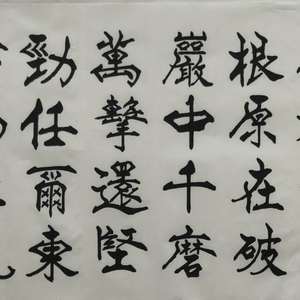 根原在破
巖中千磨
萬擊還堅
勁任爾東